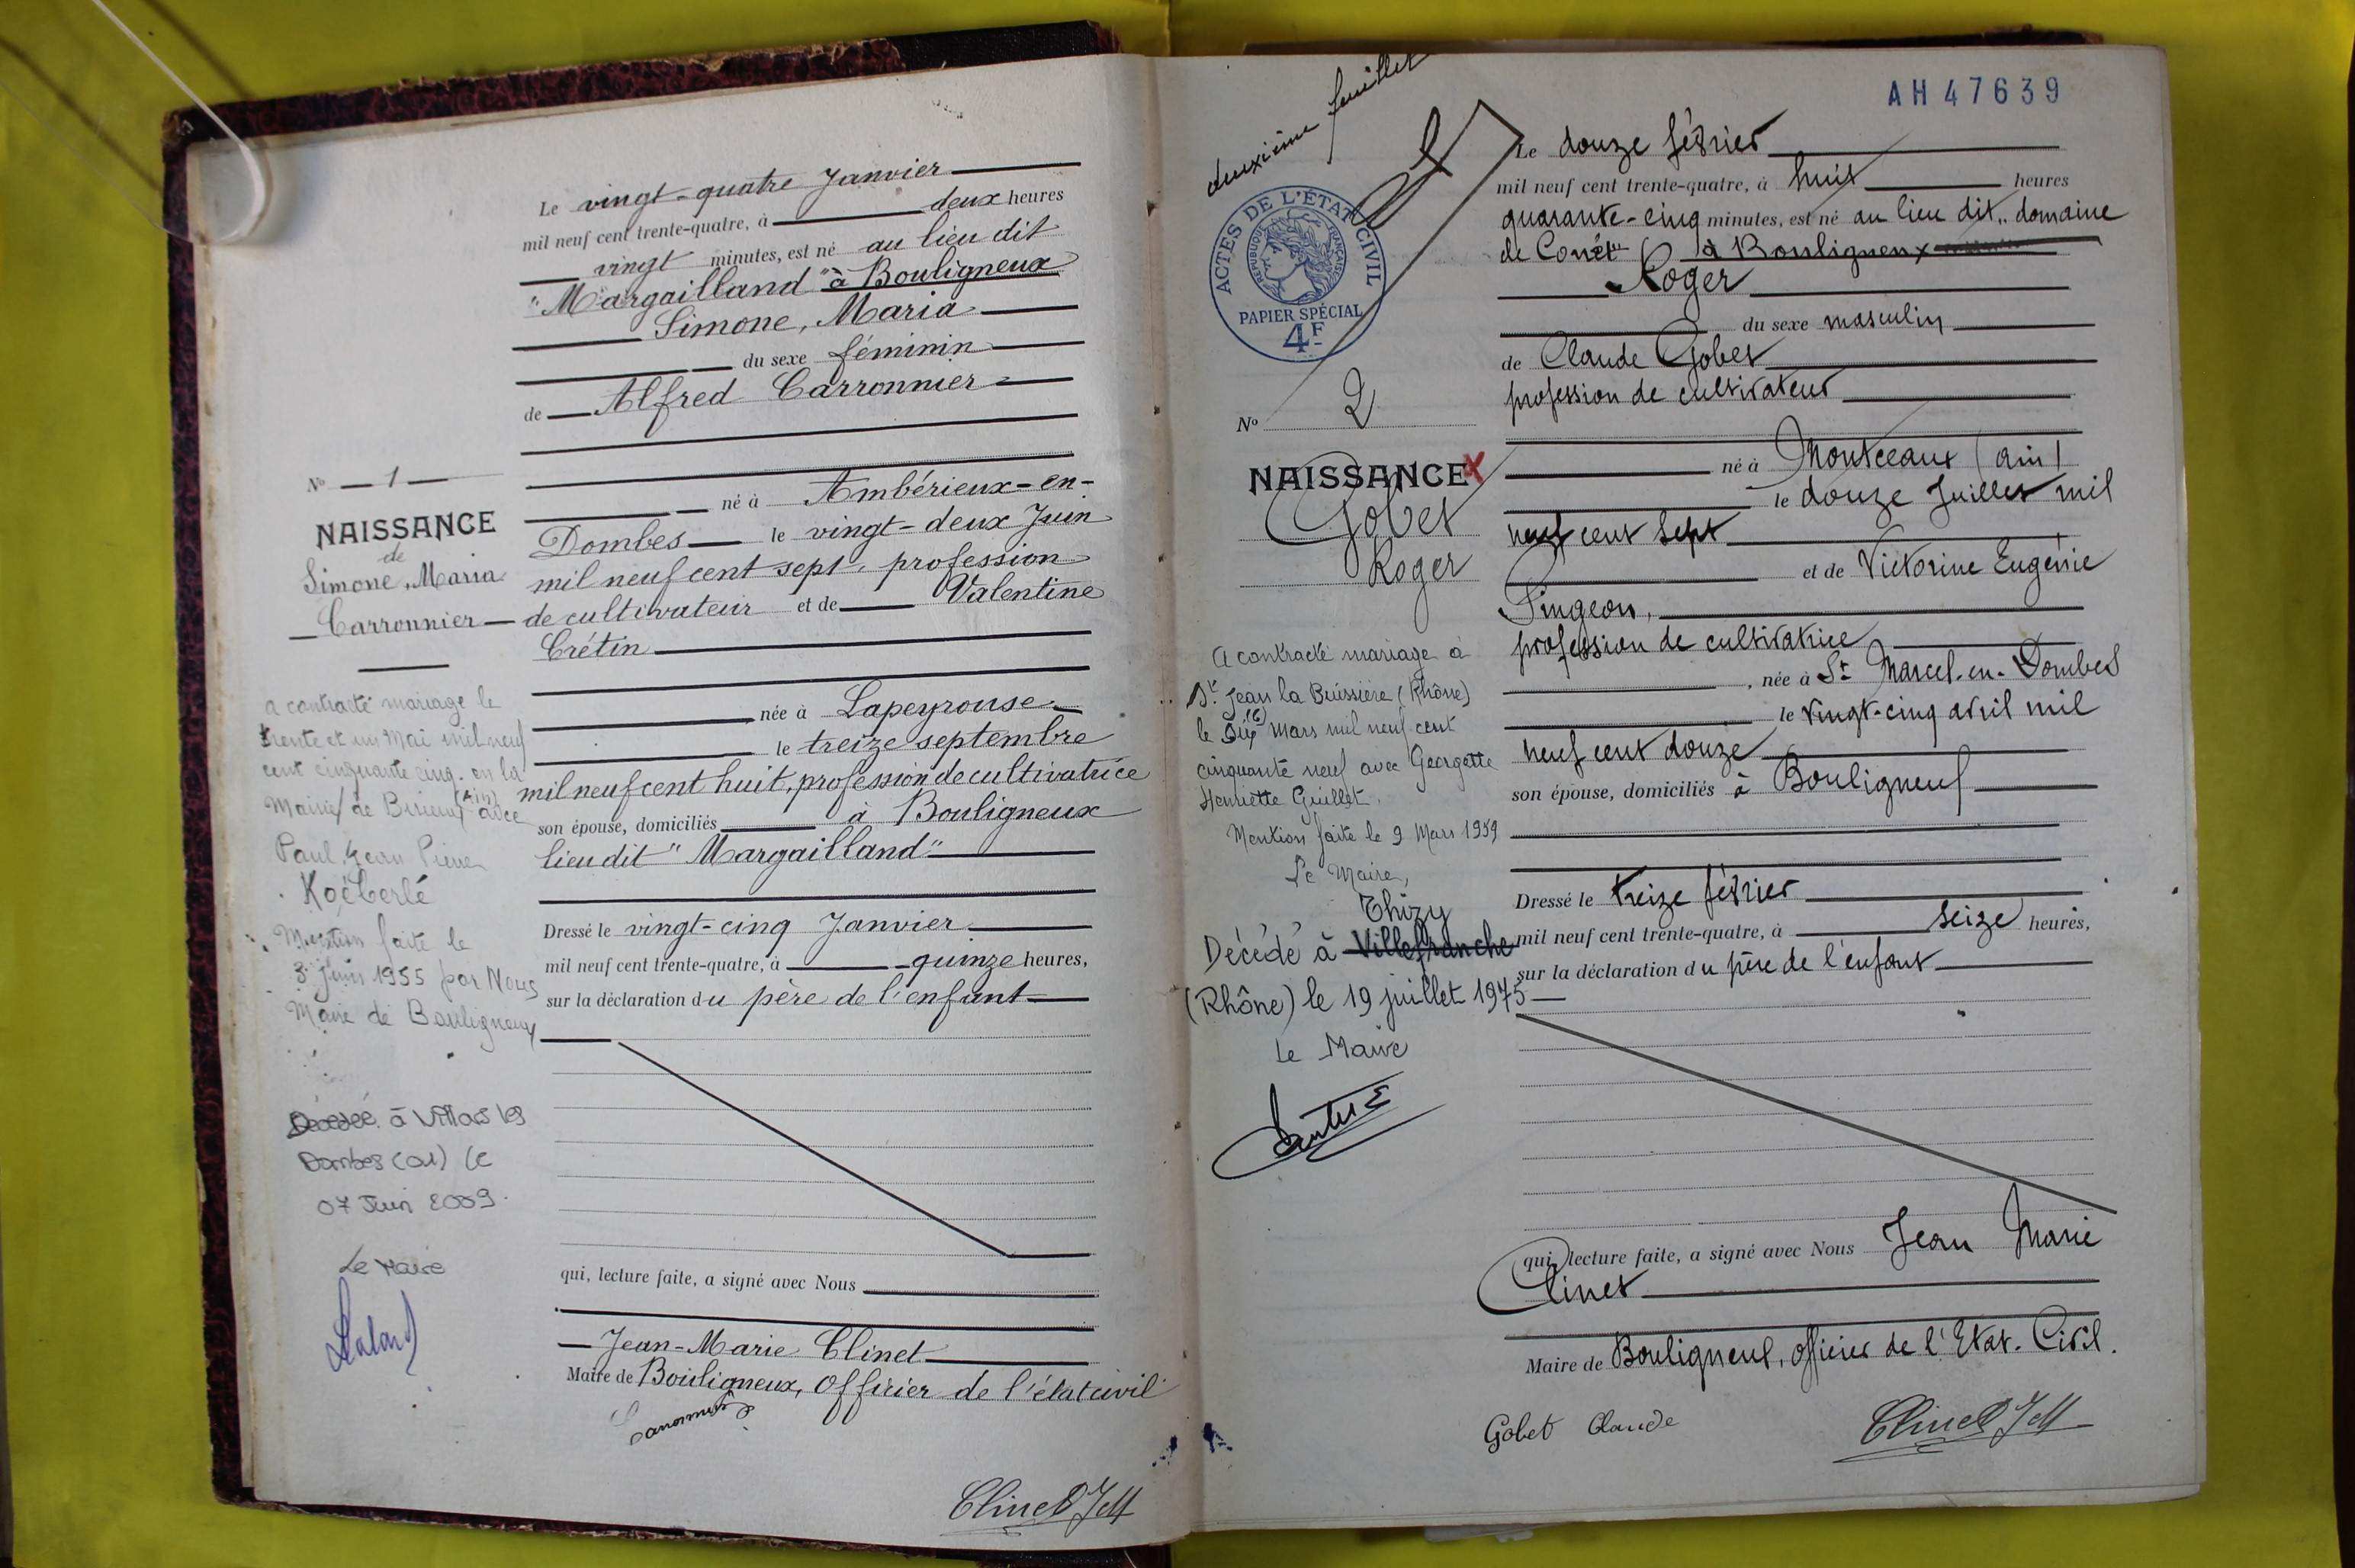 Le vingt-quatre Janvier
mil neuf cent trente-quatre, à deux heures
vingt minutes, est né au lieu dit
"Margailland" à Bouligneux
Simone, Maria
du sexe féminin
de Alfred Carronnier
né à Ambérieux-en-
Dombes le vingt-deux Juin
mil neuf cent sept, profession
de cultivateur et de Valentine
Crétin
née à Lapeyrouse
le treize septembre
mil neuf cent huit, profession de cultivatrice
son épouse, domiciliés à Bouligneux
lieu dit "Margailland"
Dressé le vingt-cinq Janvier
mil neuf cent trente-quatre, à quinze heures,
sur la déclaration du père de l'enfant
qui, lecture faite, a signé avec Nous
Jean-Marie Clinet
Maire de Bouligneux, Officier de l'état civil
Clinet JM
No 1
NAISSANCE
de
Simone, Maria
Carronnier
a contracté mariage le
trente et un Mai mil neuf
cent cinquante cinq. en la
Mairie de Birieux (Ain) avec
Paul Jean Pierre
Koëberlé
Mention faite le
3 Juin 1955 par Nous
Maire de Bouligneux
Décédée à Villars les
Dombes (01) le
07 Juin 2009.
Le Maire
deuxième feuillet
AH47639
ACTES DE L'ÉTAT CIVIL
RÉPUBLIQUE FRANÇAISE
PAPIER SPÉCIAL
4F
No 2
NAISSANCE X
Gobet
Roger
A contracté mariage à
St Jean la Bussière (Rhône)
le Six (6) Mars mil neuf cent
cinquante neuf avec Georgette
Henriette Guillet.
Mention faite le 9 Mars 1959
Le Maire,
Thizy
Décédé à Villefranche
(Rhône) le 19 juillet 1975
Le Maire
Le douze février
mil neuf cent trente-quatre, à huit heures
quarante-cinq minutes, est né au lieu dit "domaine
de à Bouligneux
Roger
du sexe masculin
de Claude Gobet
profession de cultivateur
né à Montceaux (ain)
le douze Juillet mil
neuf cent sept
et de Victorine Eugénie
Pingeon,
profession de cultivatrice
, née à St Marcel-en-Dombes
le vingt-cinq avril mil
neuf cent douze
son épouse, domiciliés à Bouligneux
Dressé le treize février
mil neuf cent trente-quatre, à seize heures,
sur la déclaration du père de l'enfant
qui, lecture faite, a signé avec Nous Jean Marie
Clinet
Maire de Bouligneux, Officier de l'Etat-Civil.
Gobet Claude
Clinet JM